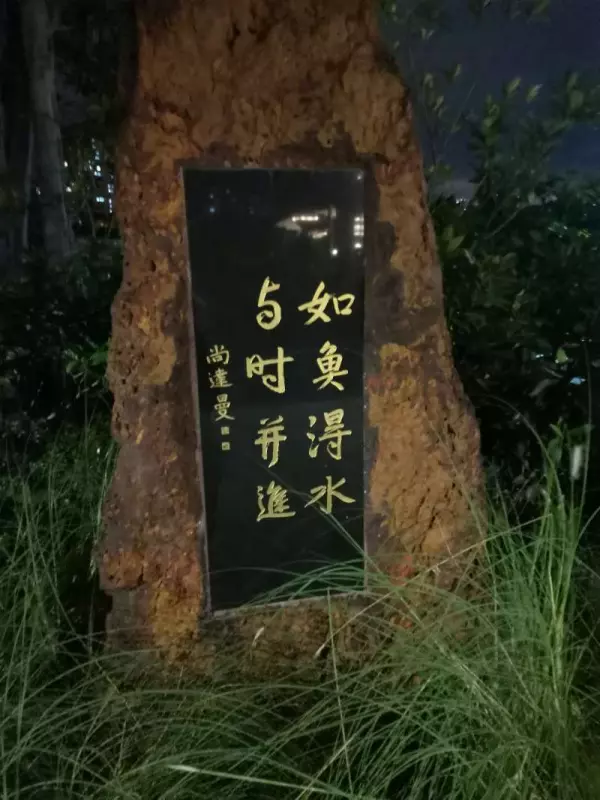 如魚得水
与时并進
尚達曼